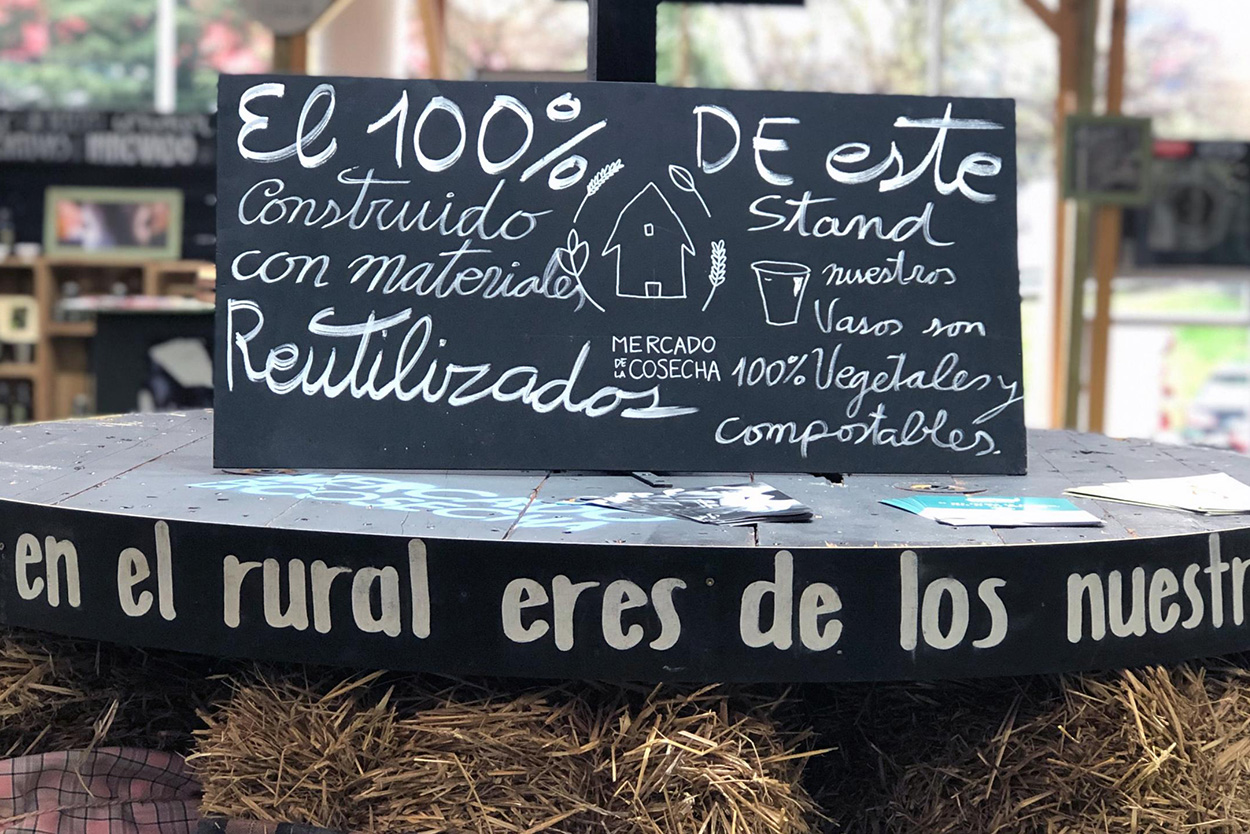 El 100% DE este
Construido Stand
con materiales nuestros
Reutilizados Vasos son
MERCADO
DE LA COSECHA
100% Vegetales y
compostables.
en el rural eres de los nuestr